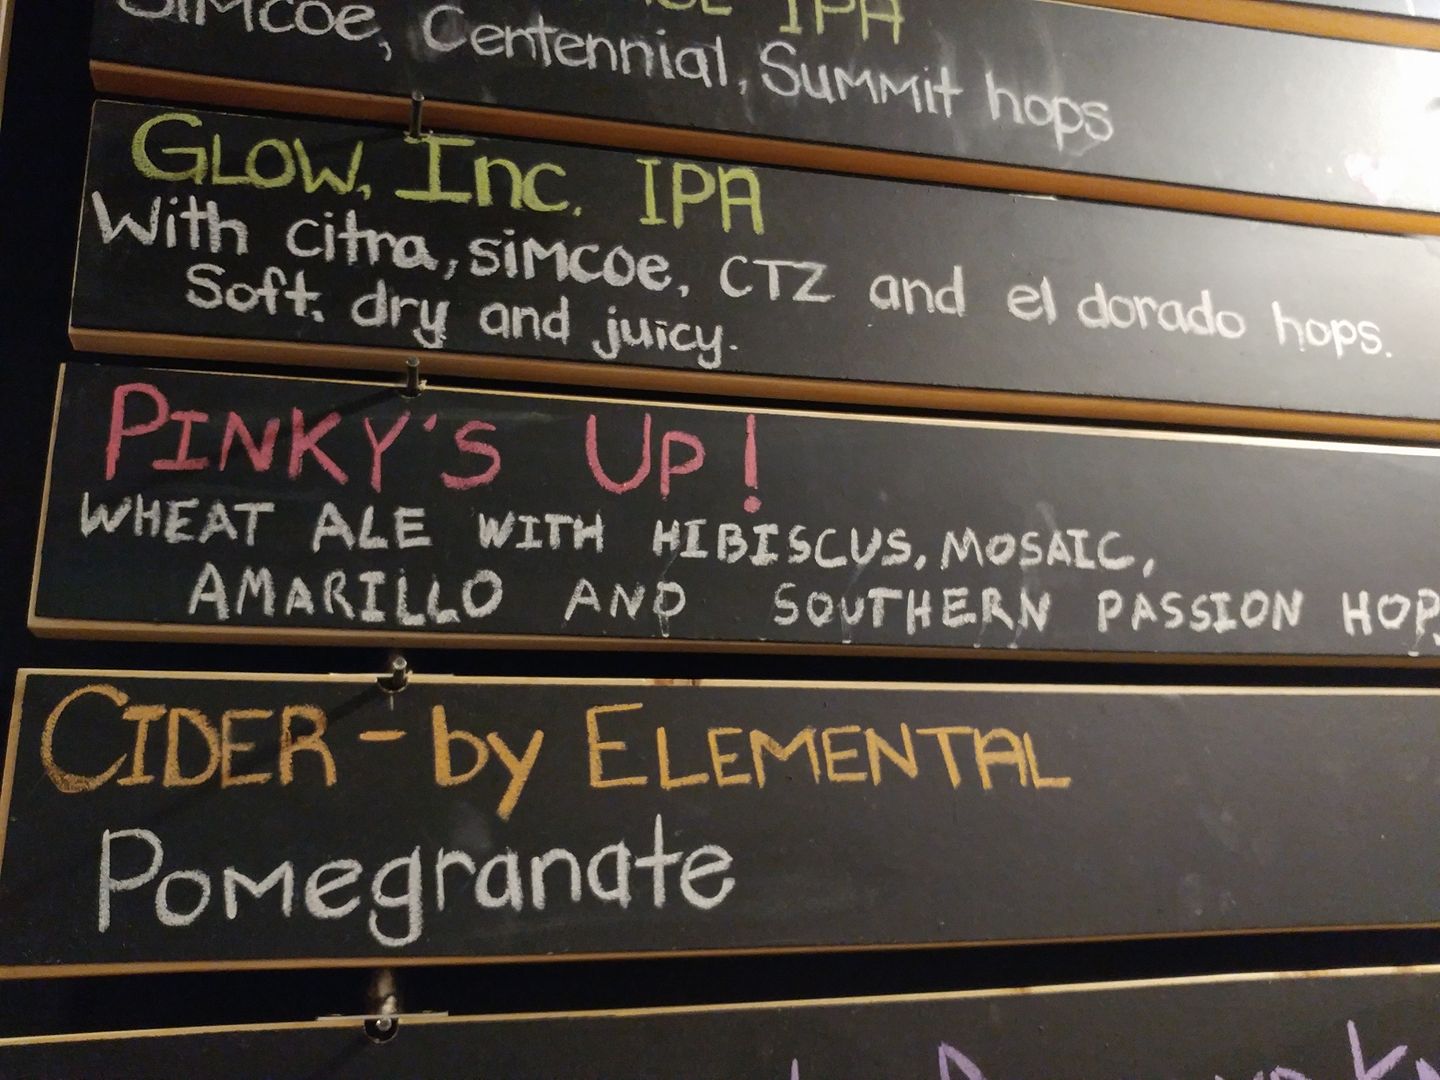 IPA
Simcoe, Centennial, Summit hops
GLOW, Inc. IPA
With citra, simcoe, CTZ and el dorado hops.
Soft, dry and juicy.
PINKY'S UP!
WHEAT ALE WITH HIBISCUS, MOSAIC,
AMARILLO AND SOUTHERN PASSION HOP
CIDER - by ELEMENTAL
Pomegranate